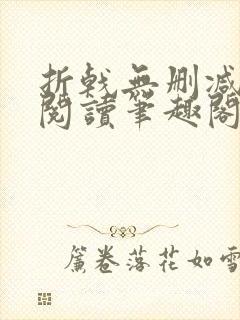 折戟無刪減
閱讀筆趣閣
簾卷落花如雪